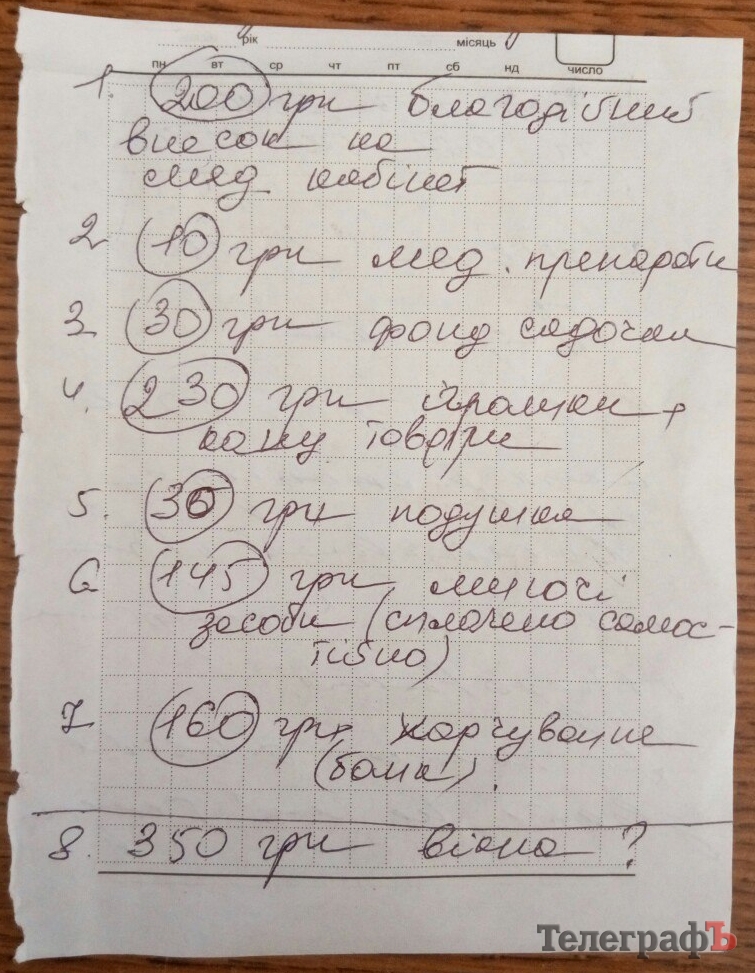 рік місяць
пн вт ср чт пт сб нд число
1. 200 грн благодійний
внесок на
мед. кабінет
2 10 грн мед. препарати
3 30 грн фонд садочка
4. 230 грн іграшки +
канц товари
5. 30 грн подушка
6 145 грн миючі
засоби (сплачено самос-
тійно)
7 160 грн харчування
(банк).
8. 350 грн вікна ?
ТелеграфЪ